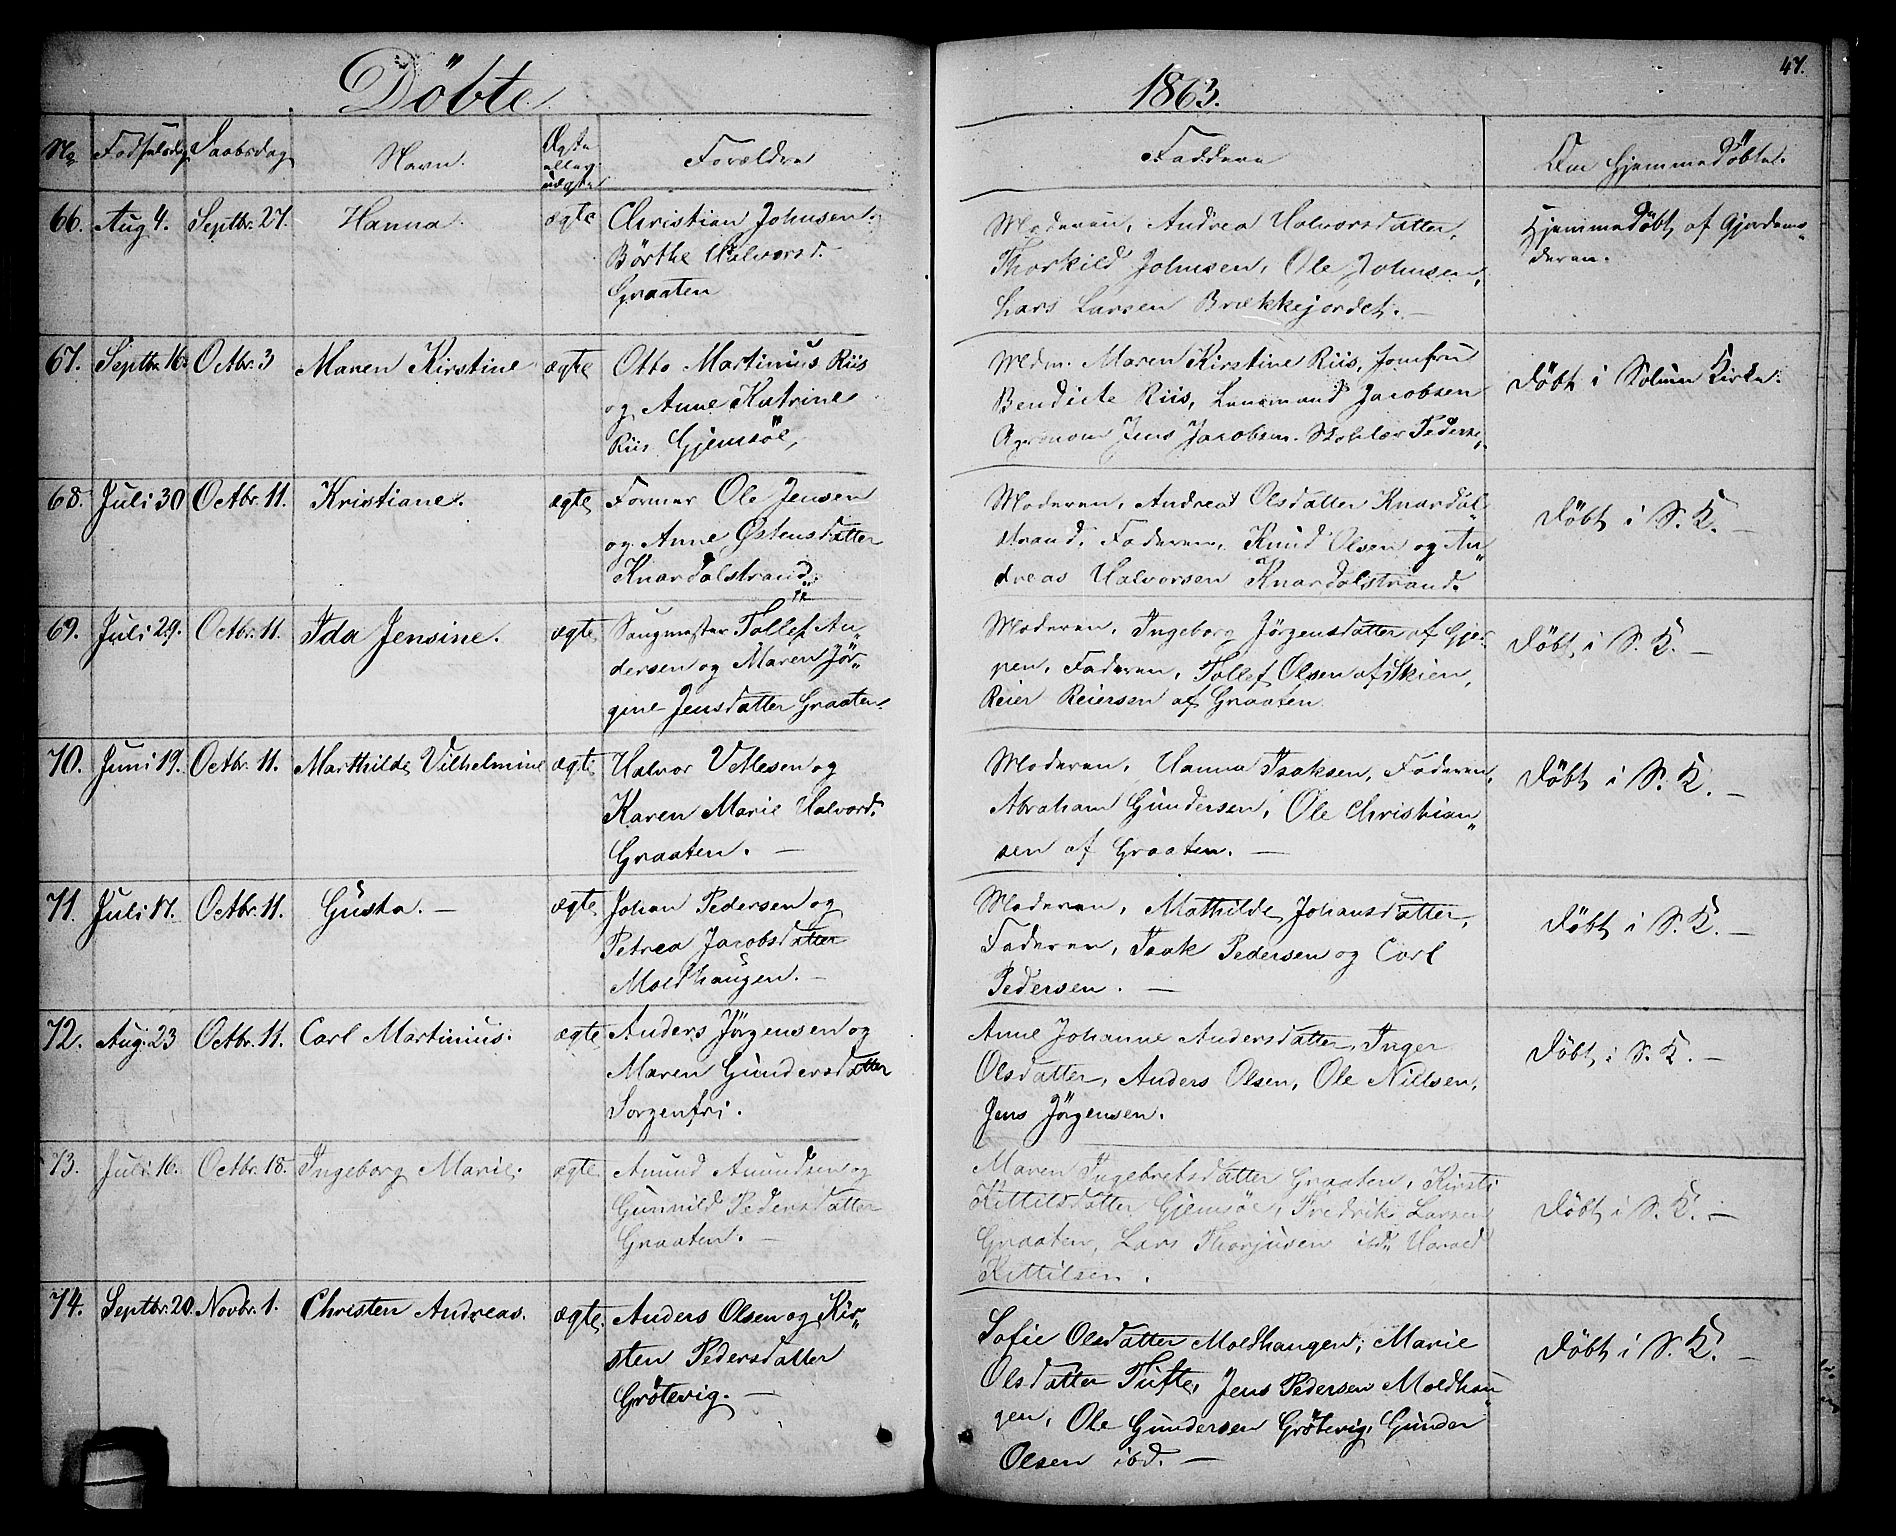 Döbte
1863.
47.
No Födselsdag Daabsdag Navn. Ægte eller uægte Forældre Faddere Om Hjemmedöbte.
66. Aug 4. Septbr. 27. Hanna. ægte Christian Johnsen.
Börthe Halvorsd.
Graaten
Moderen, Andrea Halvorsdatter,
Thorkild Johnsen, Ole Johnsen,
Lars Larsen Brækkejordet. —
Hjemmedöbt af Gjordemo„
deren.
67. Septbr. 16. Octbr. 3 Maren Kirstine ægte Otto Martinius Riis
og Anne Katrine
Riis Gjemsöe,
Mdm. Maren Kirstine Riis, Jomfru
Bendicte Riis, Lensmand Jacobsen
Agronom Jens Jacobsen.
Döbt i Solum Kirke.
68. Juli 30 Octbr. 11. Kristiane. ægte Former Ole Jensen
og Anne Østensdatter
Knardalstrand.
Moderen, Andrea Olsdatter Knardal„
strand, Faderen, Knud Olsen og An„
dreas Halvorsen Knardalstrand.
Döbt i S. K. —
69. Juli 29. Octbr. 11. Ida Jensine. ægte Saugmester Tollef An„
dersen og Maren Jör„
gine Jensdatter Graaten.
Moderen, Ingeborg Jörgensdatter af Gjer„
pen, Faderen, Tollef Olsen af Skien,
Reier Reiersen af Graaten.
Döbt i S. K. —
70. Juni 19. Octbr. 11. Marthilde Vilhelmine ægte Halvor Vetlesen og
Karen Marie Halvord.
Graaten. —
Moderen, Hanna Isaksen, Faderen,
Abraham Gundersen, Ole Christian„
sen af Graaten. —
Döbt i S. K. —
71. Juli 17. Octbr. 11. Gusta. — ægte Johan Pedersen og
Petrea Jacobsdatter
Moldhaugen. —
Moderen, Mathilde Johansdatter,
Faderen, Isak Pedersen og Carl
Pedersen. —
Döbt i S. K. —
72. Aug. 23 Octbr. 11. Carl Martinius. ægte Anders Jörgensen og
Maren Gundersdatter
Sorgenfri.
Anne Johanne Andersdatter, Inger
Olsdatter, Anders Olsen, Ole Nillsen,
Jens Jörgensen.
Döbt i S. K. —
73. Juli 16. Octbr. 18. Ingeborg Marie. ægte Amund Amundsen og
Gunnild Pedersdatter
Graaten. —
Maren Ingebretsdatter Graaten, Kirsti
Kittilsdatter Gjemsöe, Fredrik Larsen
Graaten, Lars Thorjusen ibd.
Kittilsen.
Döbt i S. K. —
74. Septbr. 20. Novbr. 1. Christen Andreas. ægte Anders Olsen og Kir„
sten Pedersdatter
Grötevig. —
Sofie Olsdatter Moldhaugen, Marie
Olsdatter Tufte, Jens Pedersen Moldhau„
gen, Ole Gundersen Grötevig, Gunder
Olsen ibd. —
Döbt i S. K. —